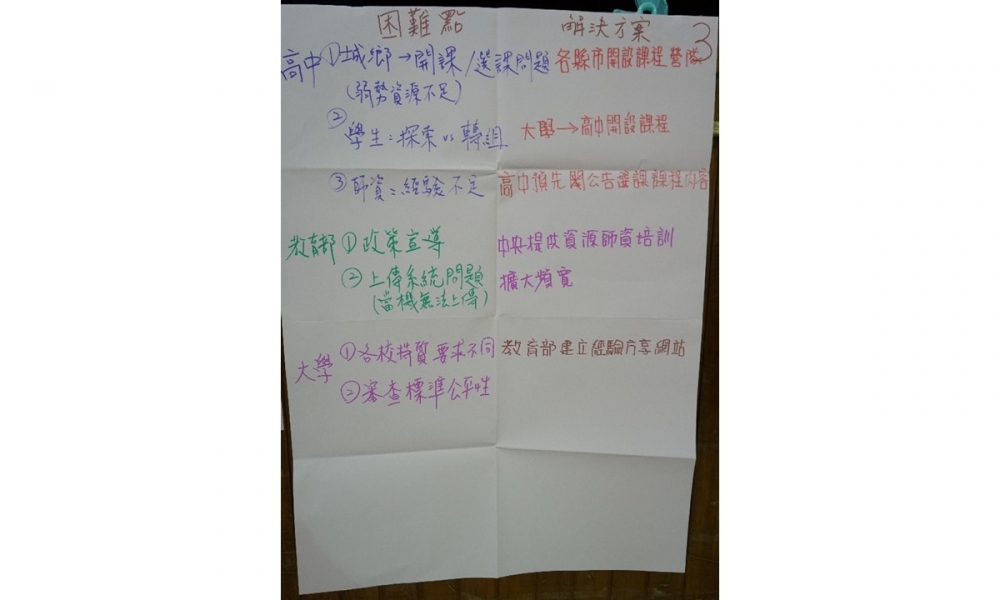 困難點 解決方案 3
高中 ①城鄉→開課/選課問題 各縣市開設課程營隊
(弱勢資源不足)
②學生：探索 vs 轉組 大學→高中開設課程
③師資：經驗不足 高中預先開公告選課課程內容
教育部 ①政策宣導 中央提供資源師資培訓
②上傳系統問題 擴大頻寬
(當機無法上傳)
大學 ①各校特質要求不同 教育部建立經驗分享網站
②審查標準公平性